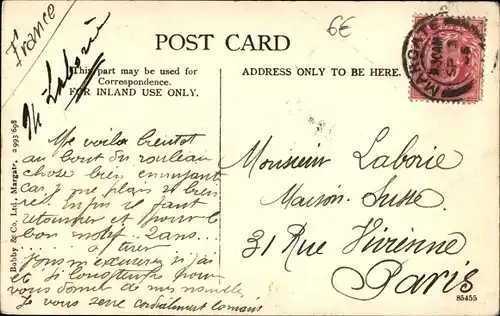 France
6€
Th. Laborie
POST CARD
This part may be used for
Correspondence.
FOR INLAND USE ONLY.
ADDRESS ONLY TO BE HERE.
MARGATE
SP 3
Me voila bientot
au bout du rouleau
chose bien ennuyant
car je me plais si bien
ici. Enfin il faut
retourner et pour le
bon motif. 2 ans....
..... à tirer
Vous m'excuserez si j'ai
été si longtemps pour
vous donner de mes nouvelles
Je vous serre cordialement la main
Monsieur Laborie
Maison Susse
31 Rue Vivienne
Paris
Bobby & Co., Ltd., Margate. 2 993/698
85455